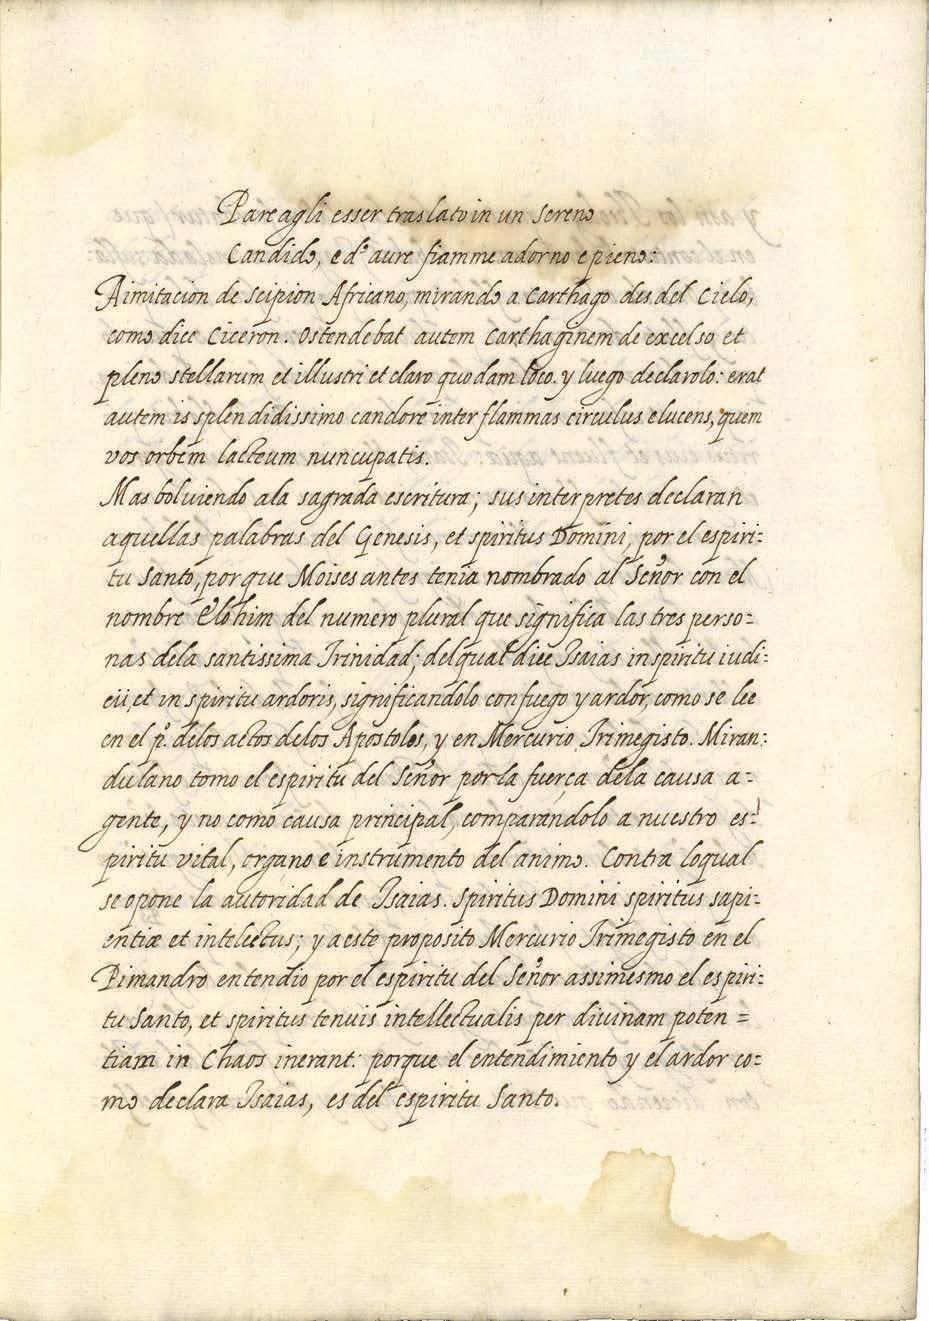 Pareagli esser traslato in un sereno
Candido, e d'aure fiamme adorno e pieno:
A imitacion de Scipion Africano, mirando a Carthago desdel Cielo,
como dice Ciceron. Ostendebat autem Carthaginem de excelso et
pleno stellarum et illustri et claro quodam loco. y luego declarolo: erat
autem is splendidissimo candore inter flammas circulus elucens, quem
vos orbem lacteum nuncupatis.
Mas bolviendo ala sagrada escritura; sus interpretes declaran
aquellas palabras del Genesis, et spiritus Domini, por el espiri=
tu Santo, porque Moises antes tenia nombrado al Señor con el
nombre Elohim del numero plural que significa las tres perso=
nas dela santissima Trinidad; delqual dice Isaias in spiritu iudi=
cii, et in spiritu ardoris, significandolo con fuego y ardor, como se lee
en el p.º delos actos delos Apostoles, y en Mercurio Trimegisto. Miran=
dulano tomo el espiritu del Señor por la fuerça dela causa a=
gente, y no como causa principal, comparandolo a nuestro es=
piritu vital, organo e instrumento del animo. Contra loqual
se opone la autoridad de Isaias. Spiritus Domini spiritus sapi=
entiæ et intelectus; y a este proposito Mercurio Trimegisto en el
Pimandro entendio por el espiritu del Señor assimesmo el espiri=
tu Santo, et spiritus tenuis intellectualis per divinam poten=
tiam in Chaos inerant: porque el entendimiento y el ardor co=
mo declara Isaias, es del espiritu Santo.